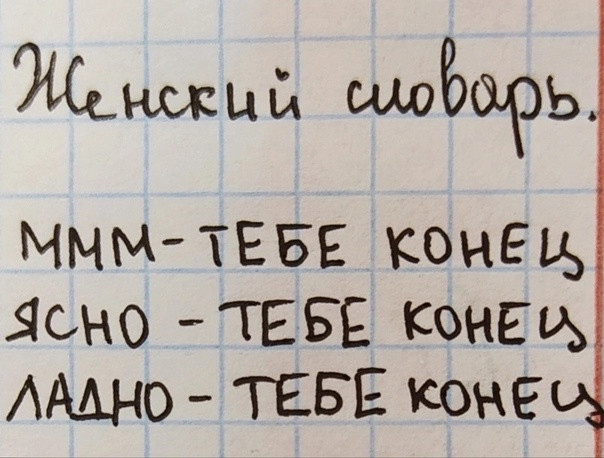 Женский словарь.
МММ - ТЕБЕ КОНЕЦ
ЯСНО - ТЕБЕ КОНЕЦ
ЛАДНО - ТЕБЕ КОНЕЦ